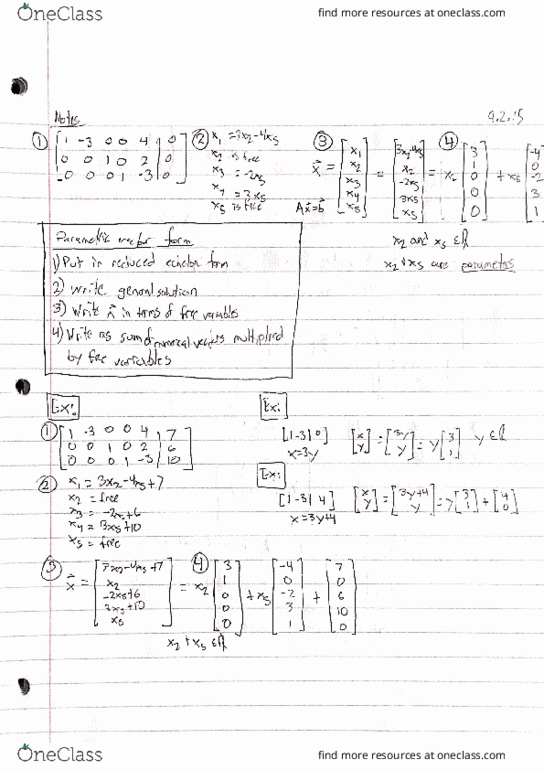 OneClass find more resources at oneclass.com
Notes 9.2.15
① [1 -3 0 0 4 | 0
0 0 1 0 2 | 0
0 0 0 1 -3 | 0]
② x₁ = 3x₂ - 4x₅
x₂ is free
x₃ = -2x₅
x₄ = 3x₅
x₅ is free
③ x⃗ = [x₁ x₂ x₃ x₄ x₅] = [3x₂-4x₅ x₂ -2x₅ 3x₅ x₅]
Ax⃗=b⃗
④ = x₂ [3 1 0 0 0] + x₅ [-4 0 -2 3 1]
x₂ and x₅ ∈ℝ
x₂ + x₅ are parameters
Parametric vector form
1) Put in reduced echelon form
2) Write general solution
3) Write x⃗ in terms of free variables
4) Write as sum of numerical vectors multiplied
by free variables
Ex:
① [1 -3 0 0 4 | 7
0 0 1 0 2 | 6
0 0 0 1 -3 | 10]
② x₁ = 3x₂ - 4x₅ + 7
x₂ = free
x₃ = -2x₅ + 6
x₄ = 3x₅ + 10
x₅ = free
Ex:
[1 -3 | 0] [x y] = [3y y] = y [3 1] y ∈ℝ
x=3y
Ex:
[1 -3 | 4] [x y] = [3y+4 y] = y [3 1] + [4 0]
x=3y+4
③ x⃗ = [3x₂-4x₅+7 x₂ -2x₅+6 3x₅+10 x₅]
④ = x₂ [3 1 0 0 0] + x₅ [-4 0 -2 3 1] + [7 0 6 10 0]
x₂ + x₅ ∈ℝ
OneClass find more resources at oneclass.com